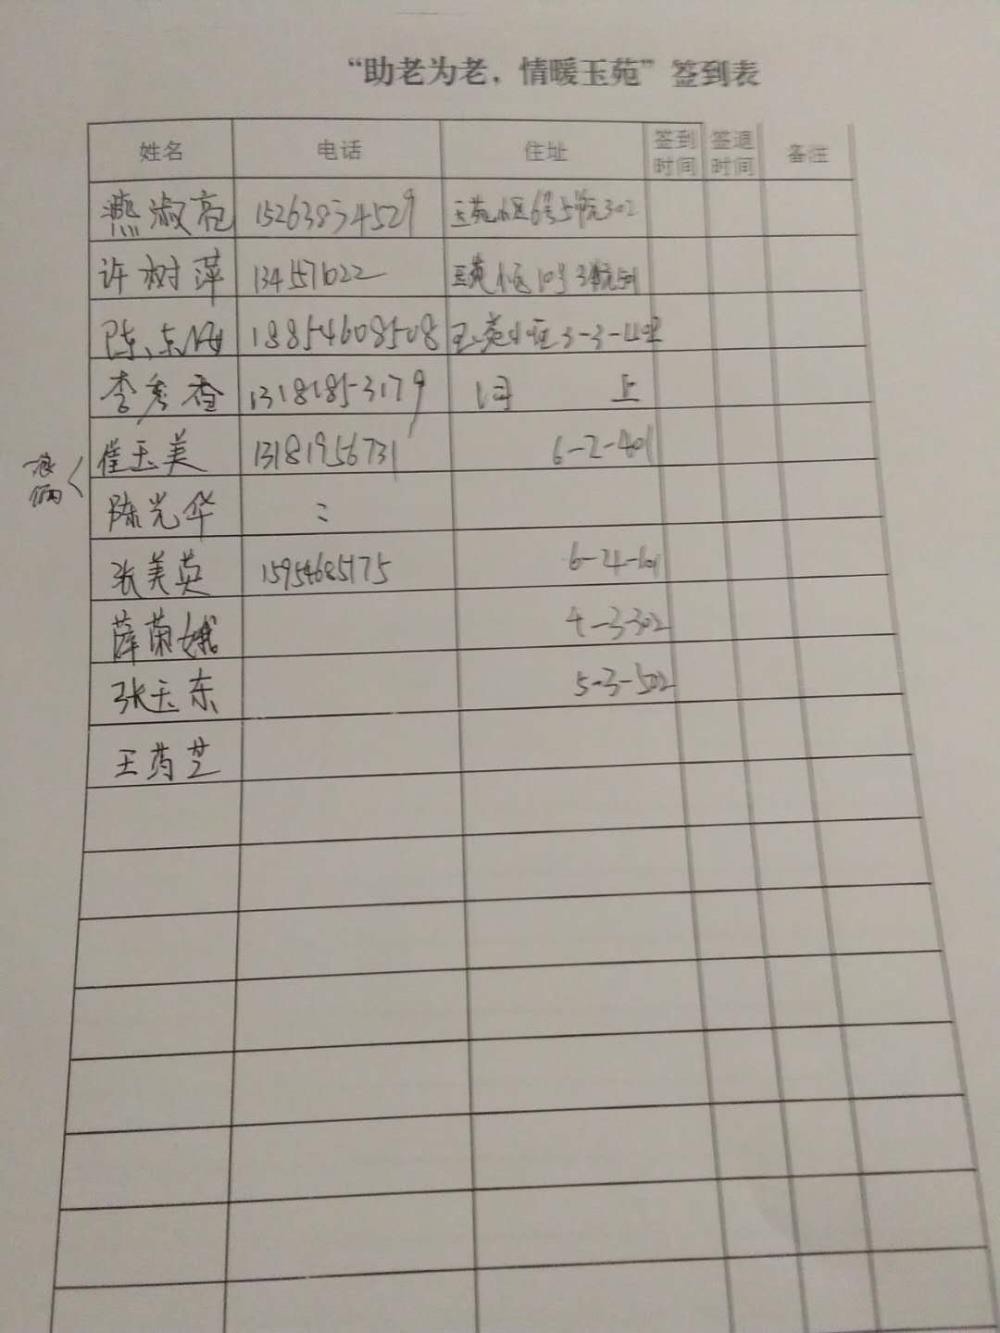 “助老为老，情暖玉苑”签到表
姓名 电话 住址 签到时间 签退时间 备注
燕淑亮 15263834529 玉苑小区6号5单元302
许树萍 134571022 玉苑小区10号3单元501
陈 18854608508 玉苑小区3-3-402
李秀香 13181853179 同 上
崔玉美 13181956731 6-2-401
俩
陈光华 :
张美英 15954685175 6-4-101
薛荣娥 4-3-302
张玉东 5-3-502
王芝